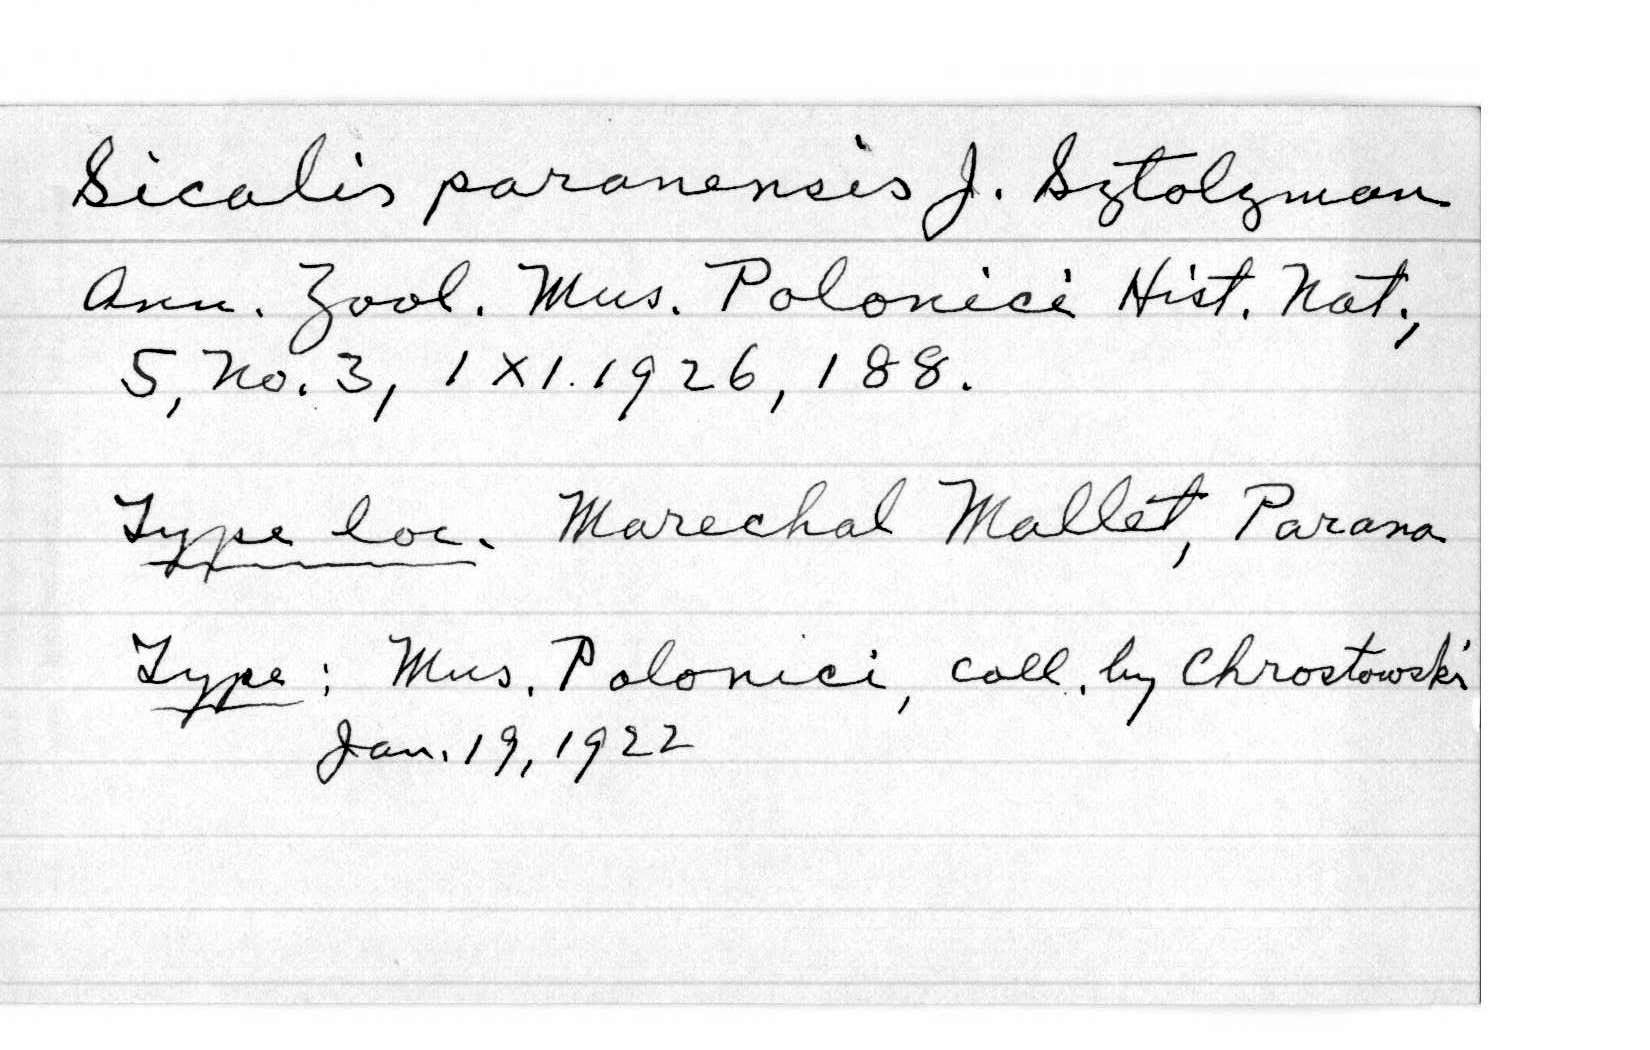 Sicalis paranensis J. Sztolzman
Ann. Zool. Mus. Polonici Hist. Nat.,
5, No. 3, 1 XI. 1926, 188.
Type loc. Marechal Mallet, Parana
Type: Mus. Polonici, coll. by Chrostowski
Jan. 19, 1922